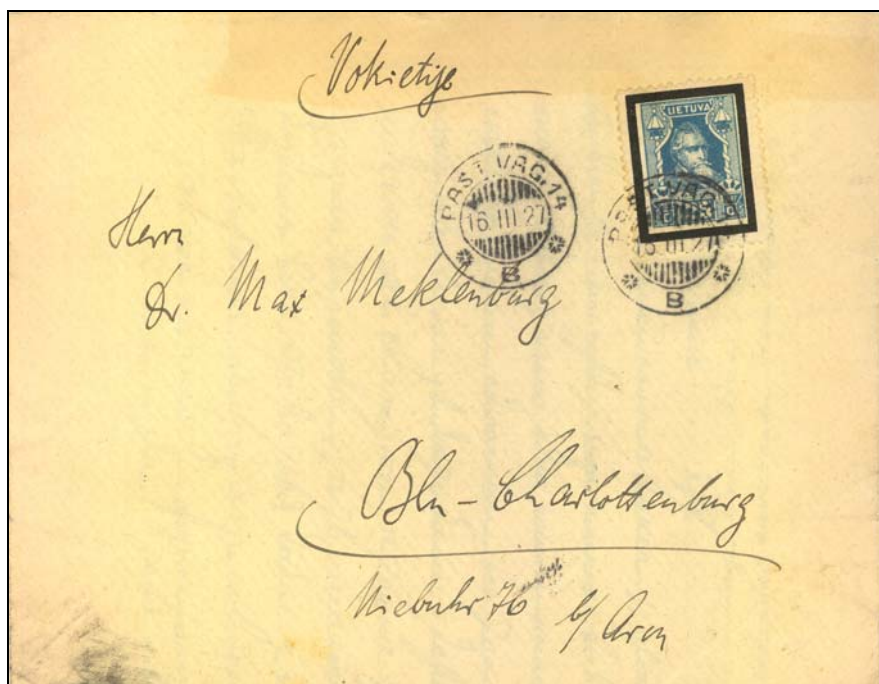 Vokietija
LIETUVA
PAST. VAG. 14
16 III 27
B
PAST. VAG.
16 III 27
B
Herrn
Dr. Max Meklenburg
Bln - Charlottenburg
Niebuhr 76 b/ Aron